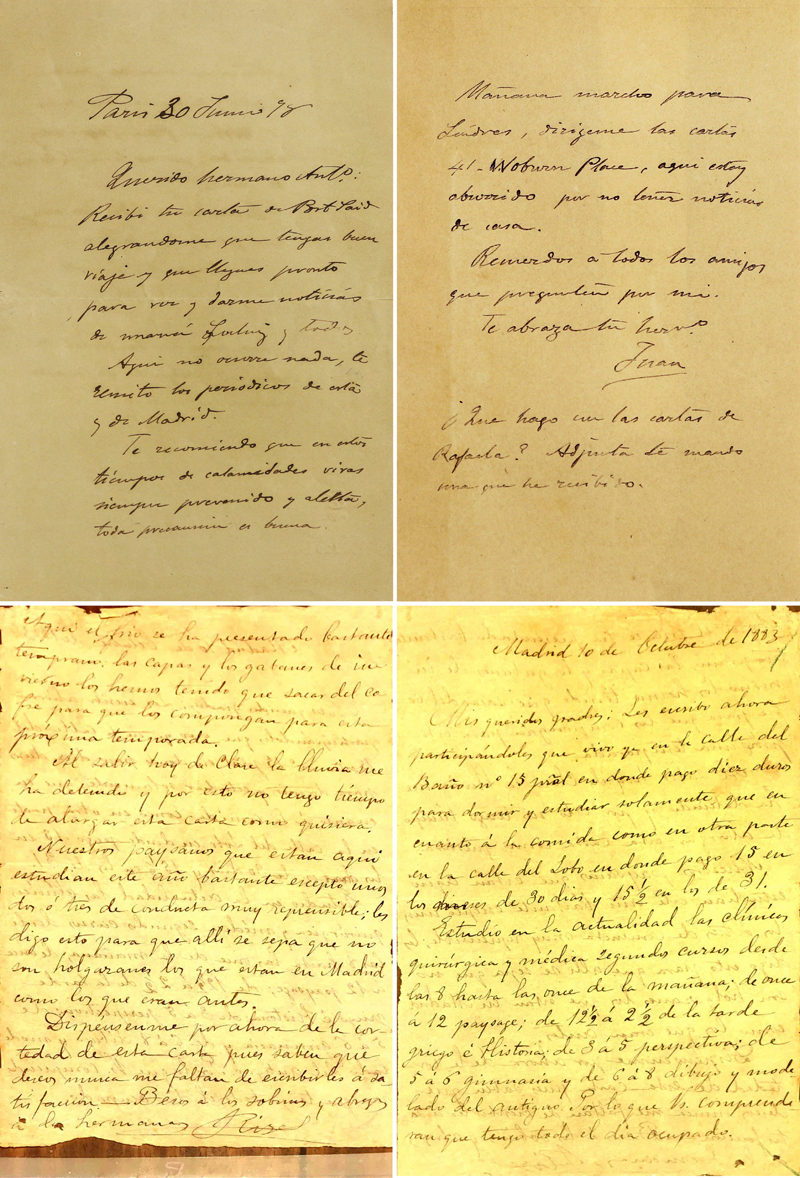 Paris 30 Junio 98
Querido hermano Antº:
Recibi tu carta de Port Said
alegrandome que tengas buen
viaje y que llegues pronto
para ver y darme noticias
de mamá y todos
Aqui no ocurre nada, te
remito los periódicos de esta
y de Madrid.
Te recomiendo que en estos
tiempos de calamidades vivas
siempre prevenido y alerta,
toda precaución es buena.
Mañana marcho para
Londres, dirigeme las cartas
41-Woburn Place, aqui estoy
aburrido por no tener noticias
de casa.
Recuerdos a todos los amigos
que pregunten por mi.
Te abraza tu hermº
Juan
¿Que hago con las cartas de
Rafaela? Adjunta te mando
una que he recibido.
Aqui el frio se ha presentado bastante
temprano, las capas y los gabanes de in
vierno los hemos tenido que sacar del co
fre para que los compongan para esta
próxima temporada.
Al salir hoy de clase la lluvia me
ha detenido y por esto no tengo tiempo
de alargar esta carta como quisiera.
Nuestros paysanos que estan aqui
estudian este año bastante escepto unos
dos ó tres de conducta muy reprensible; les
digo esto para que allí se sepa que no
son holgazanes los que estan en Madrid
como los que eran antes.
Dispensenme por ahora de la cor
tedad de esta carta pues saben que
deseos nunca me faltan de escribirles á sa
tisfaccion. Besos á los sobrinos y abrazos
á las hermanas Rizal
Madrid 10 de Octubre de 1883
Mis queridos padres: Les escribo ahora
participándoles que vivo ya en la calle del
Baño nº 15 pral en donde pago diez duros
para dormir y estudiar solamente que en
cuanto á la comida como en otra parte
en la calle del Lobo en donde pago 15 en
los meses de 30 dias y 15 1/2 en los de 31.
Estudio en la actualidad las clínicas
quirúrgica y médica segundos cursos desde
las 8 hasta las once de la mañana; de once
á 12 paysage; de 12 1/2 á 2 1/2 de la tarde
griego é Historia; de 3 á 5 perspectiva; de
5 á 6 gimnacia y de 6 á 8 dibujo y mode
lado del antiguo. Por lo que Vs. comprende
ran que tengo todo el dia ocupado.